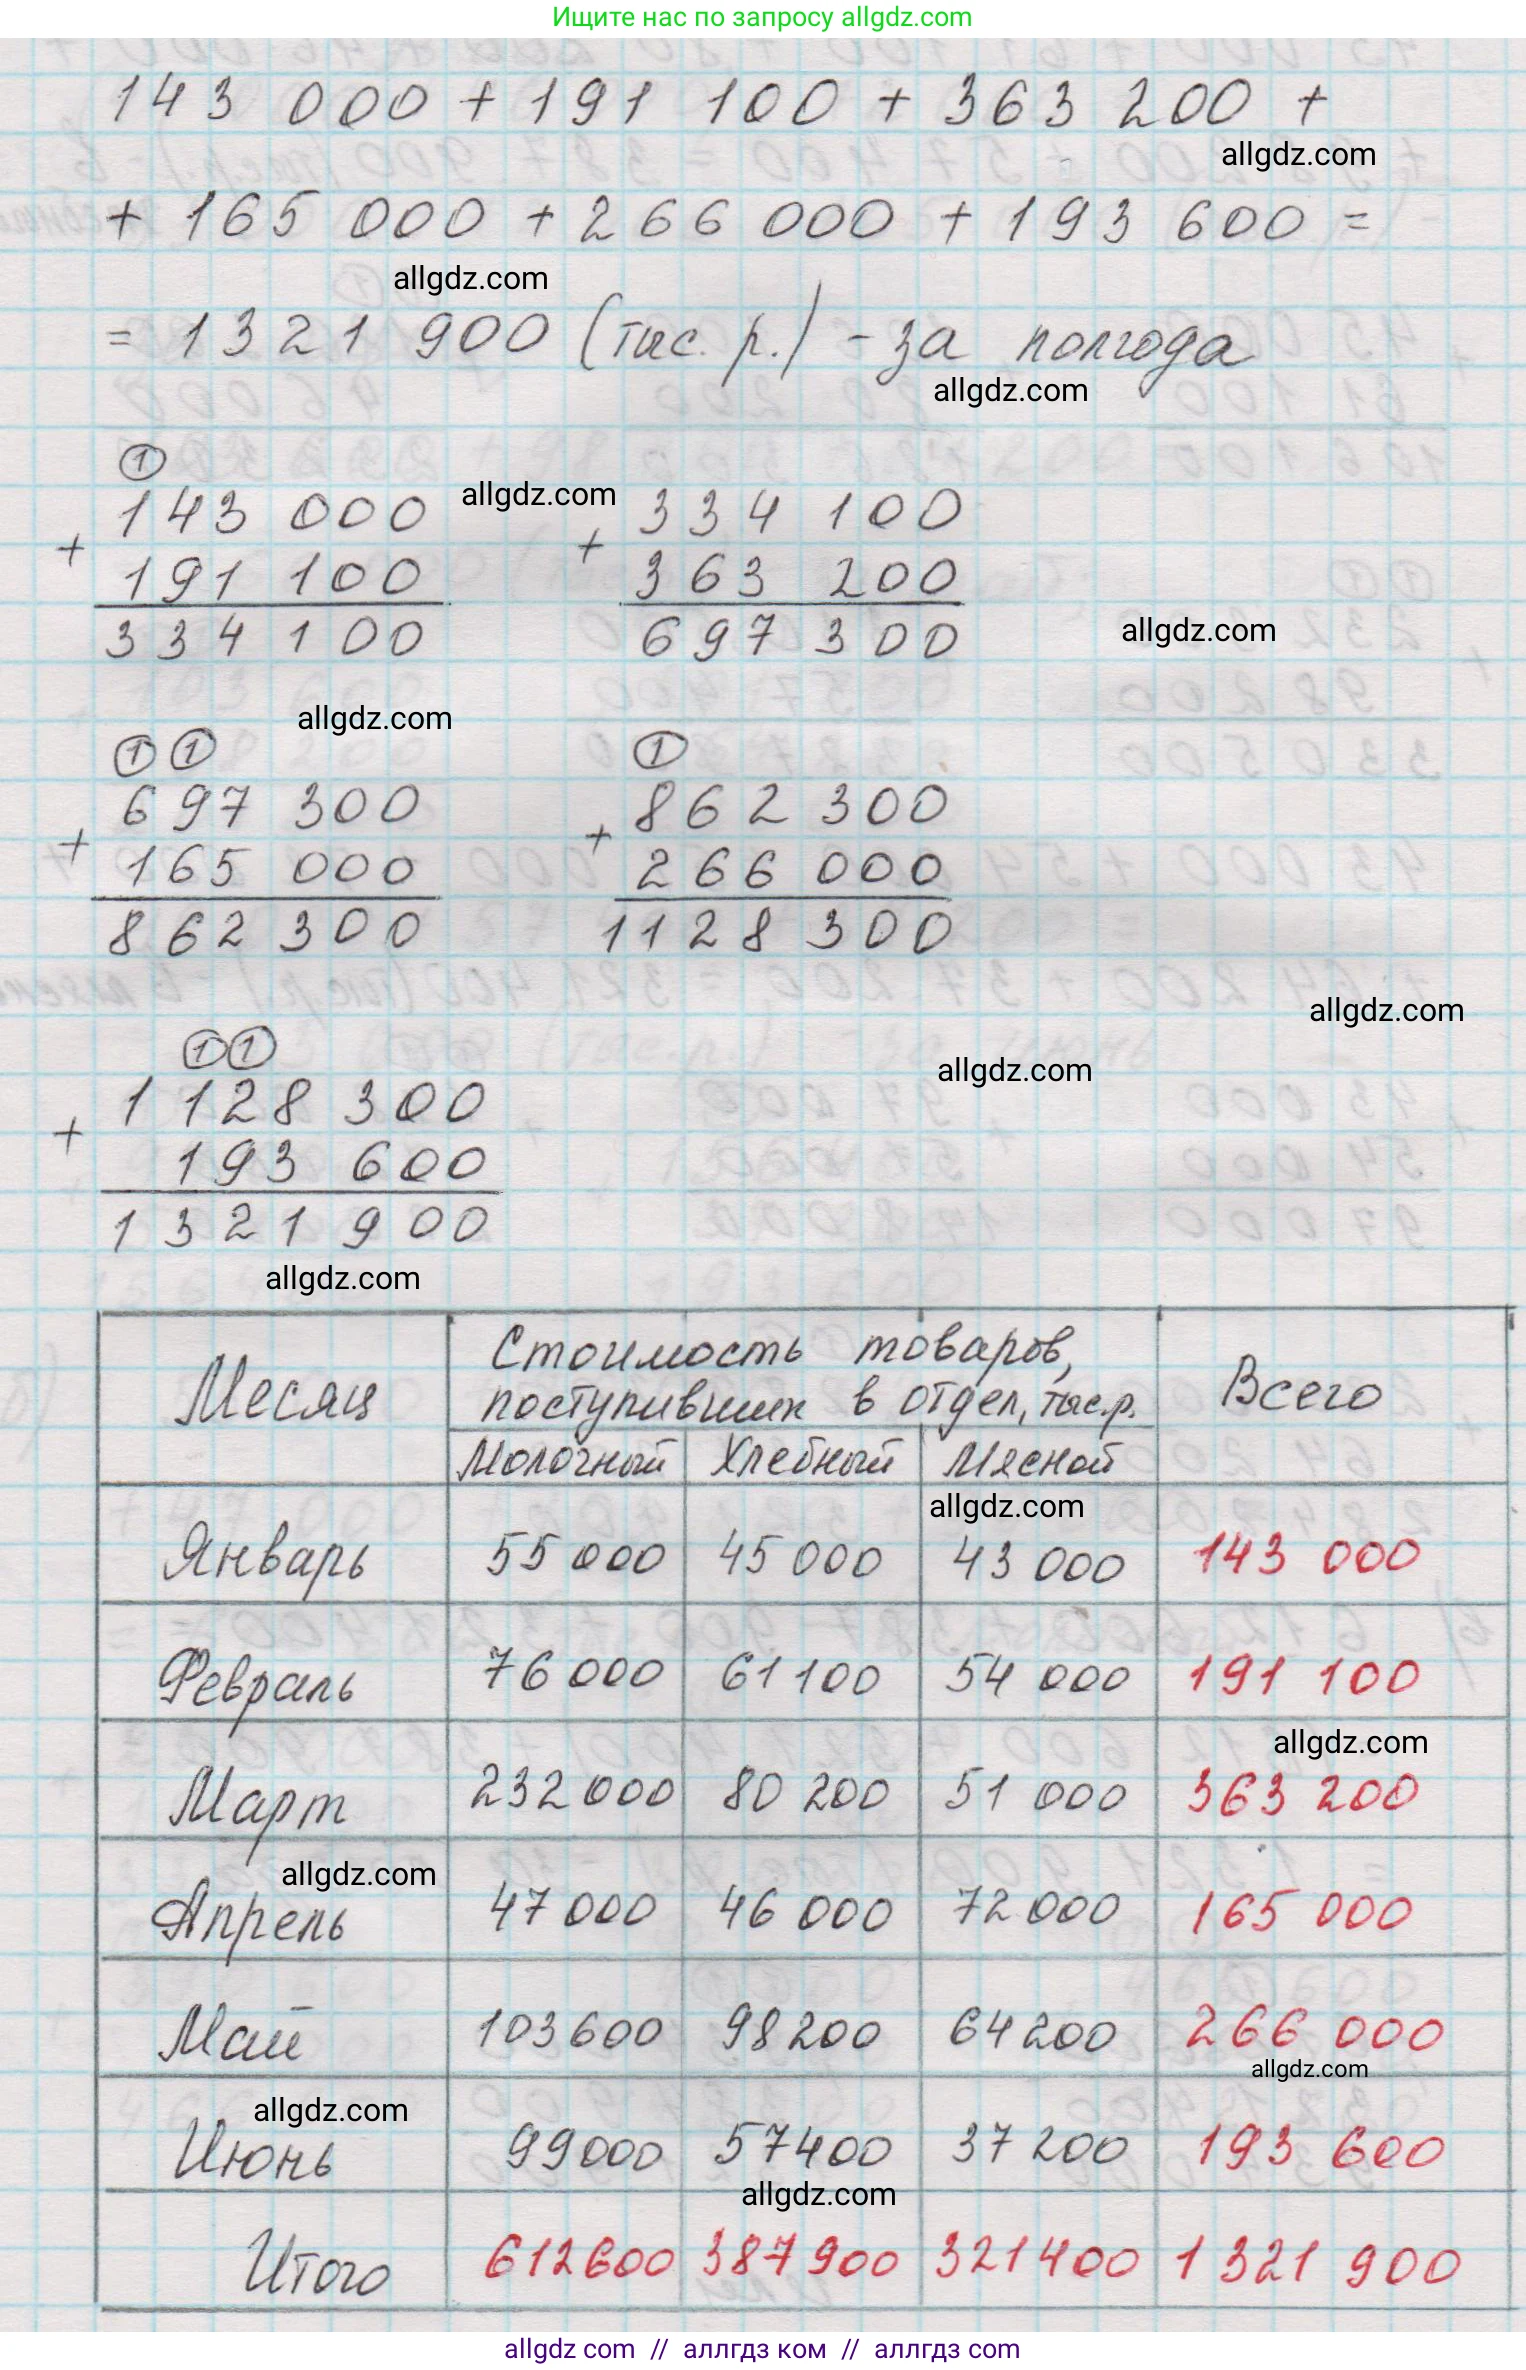 Ищите нас по запросу allgdz.com
143 000 + 191 100 + 363 200 +
allgdz.com
+ 165 000 + 266 000 + 193 600 =
allgdz.com
= 1321 900 (тыс. р.) - за полгода
allgdz.com
1
143 000 allgdz.com 334 100
+ +
191 100 363 200
334 100 697 300
allgdz.com
allgdz.com
1 1 1
697 300 862 300
+ +
165 000 266 000
862 300 1128 300
allgdz.com
1 1 allgdz.com
1 128 300
+
193 600
1 321 900
allgdz.com
Месяц Стоимость товаров, Всего
поступивших в отдел, тыс.р.
Молочный Хлебный Мясной
allgdz.com
Январь 55 000 45 000 43 000 143 000
Февраль 76 000 61 100 54 000 191 100
allgdz.com
Март 232 000 80 200 51 000 363 200
allgdz.com
Апрель 47 000 46 000 72 000 165 000
Май 103 600 98 200 64 200 266 000
allgdz.com
allgdz.com
Июнь 99 000 57 400 37 200 193 600
allgdz.com
Итого 612 600 387 900 321 400 1 321 900
allgdz.com // аллгдз ком // аллгдз com